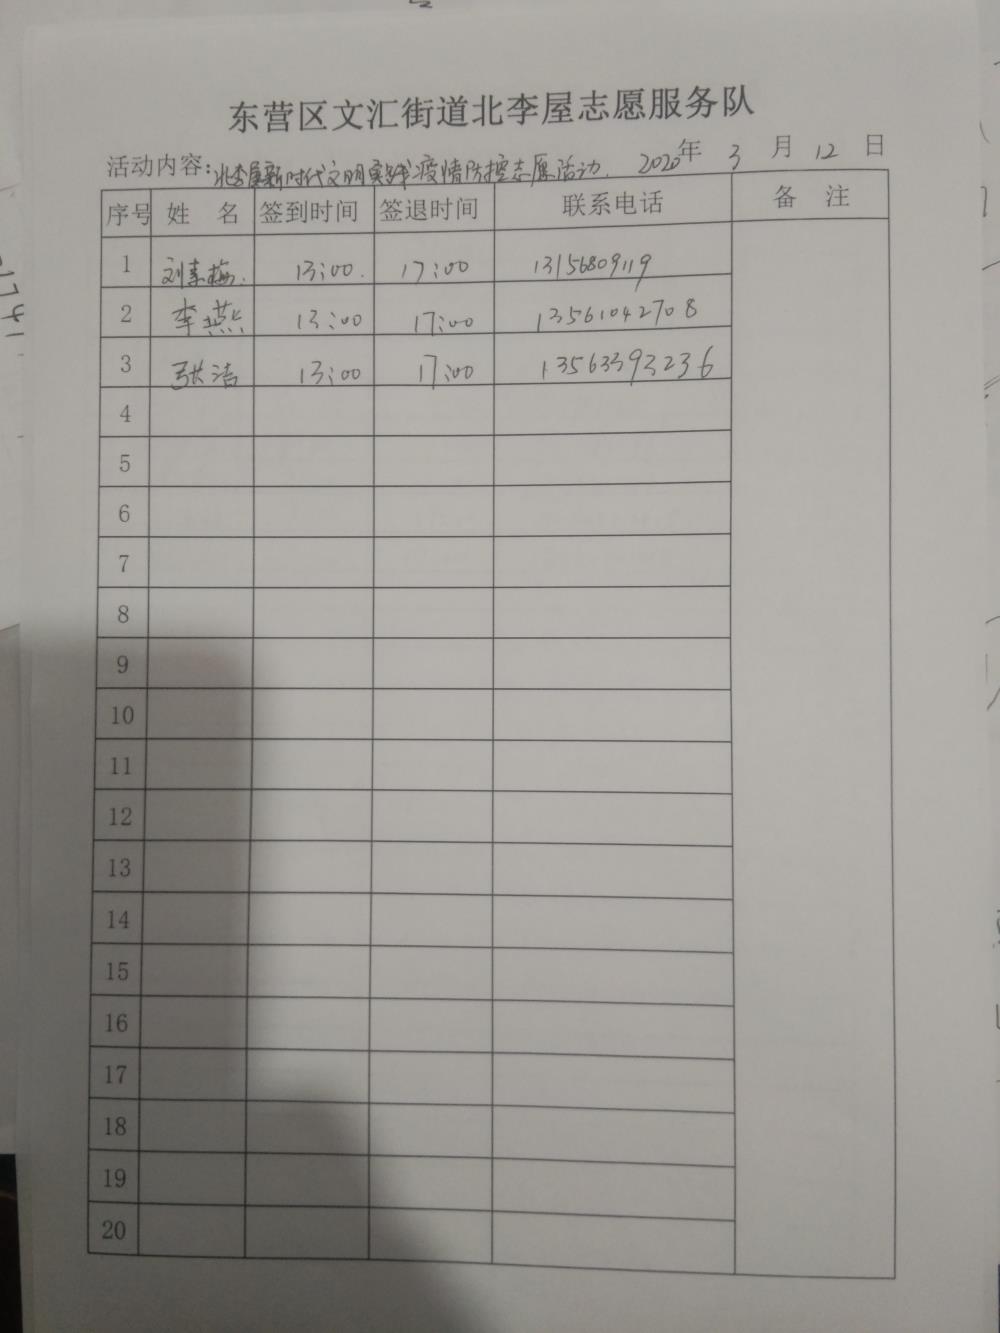 东营区文汇街道北李屋志愿服务队
活动内容：北李屋新时代文明实践疫情防控志愿活动. 2020年 3 月 12 日
序号 姓 名 签到时间 签退时间 联系电话 备 注
1 刘素梅. 13:00. 17:00 13156809119
2 李燕 13:00 17:00 13561042708
3 张洁 13:00 17:00 13563393236
4
5
6
7
8
9
10
11
12
13
14
15
16
17
18
19
20